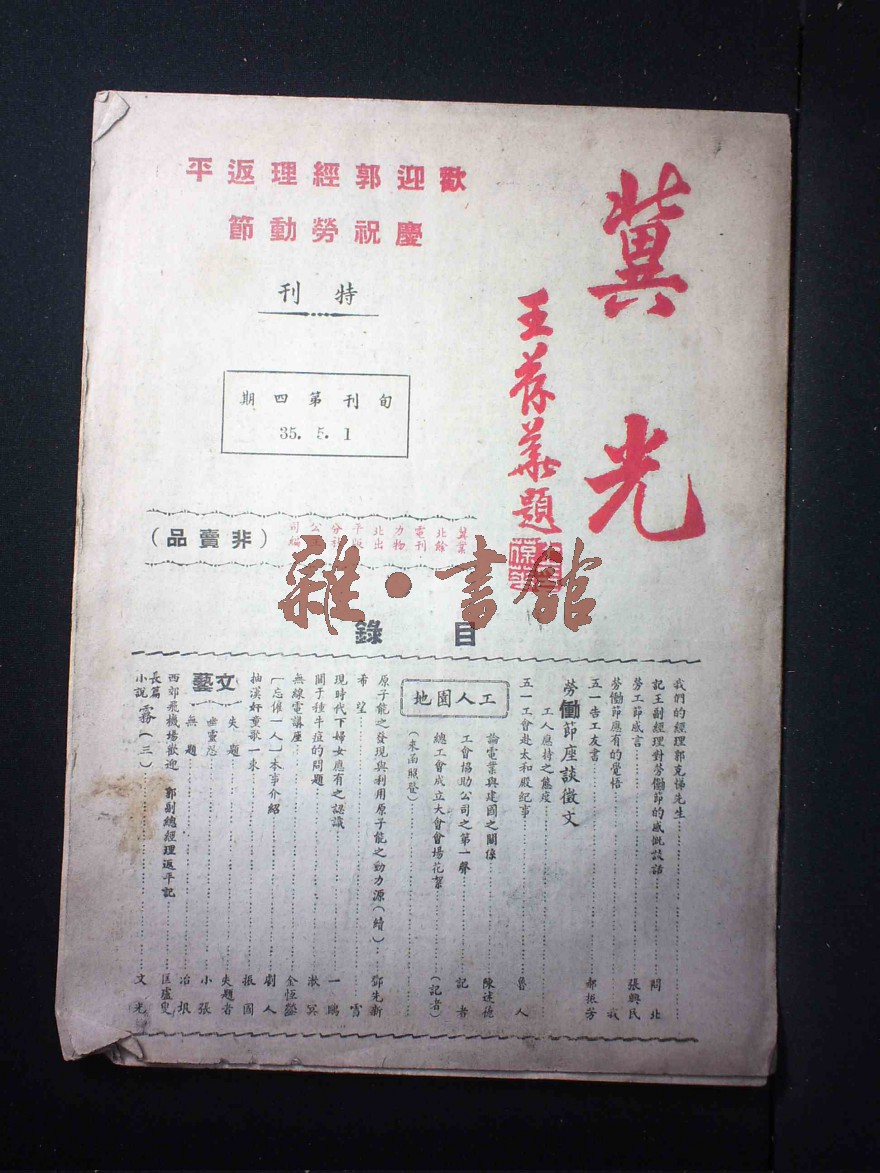 冀光
王蔭華題
歡迎郭經理返平
慶祝勞動節
特刊
旬刊第四期
35. 5. 1
冀北電力北平分公司
業餘刊物出版社編
（非賣品）
雜·書館
目錄
我們的經理郭克悌先生
記王副經理對勞働節的感慨談話 問北
勞工節感言 張興民
勞働節應有的覺悟 戟
五一告工友書 郝振芳
勞働節座談徵文
工人應持之態度
五一工會赴太和殿紀事 魯人
工人園地
論電業與建國之關係 陳述德
工會協助公司之第一聲 記者
總工會成立大會會場花絮 （記者）
（來函照登）
原子能之發現與利用原子能之動力源（續） 鄧先漸
希望 雪
現時代下婦女應有之認識 一鵬
關于種牛痘的問題 漱冥
無線電講座 金恆懿
〔忘催一人〕本事介紹 劇人
抽漢奸童歌一束 振國
文藝
失題 失題者
幽靈怨 小張
無題 冶垠
西郊飛機場歡迎郭副總經理返平記 匡廬叟
長篇小說 霧（三） 文光